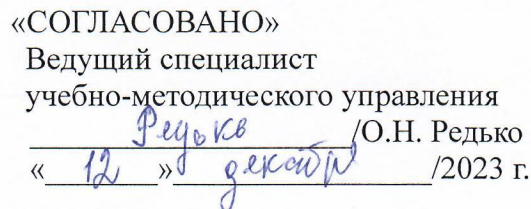 «СОГЛАСОВАНО»
Ведущий специалист
учебно-методического управления
Редько/О.Н. Редько
«12»декабря/2023 г.